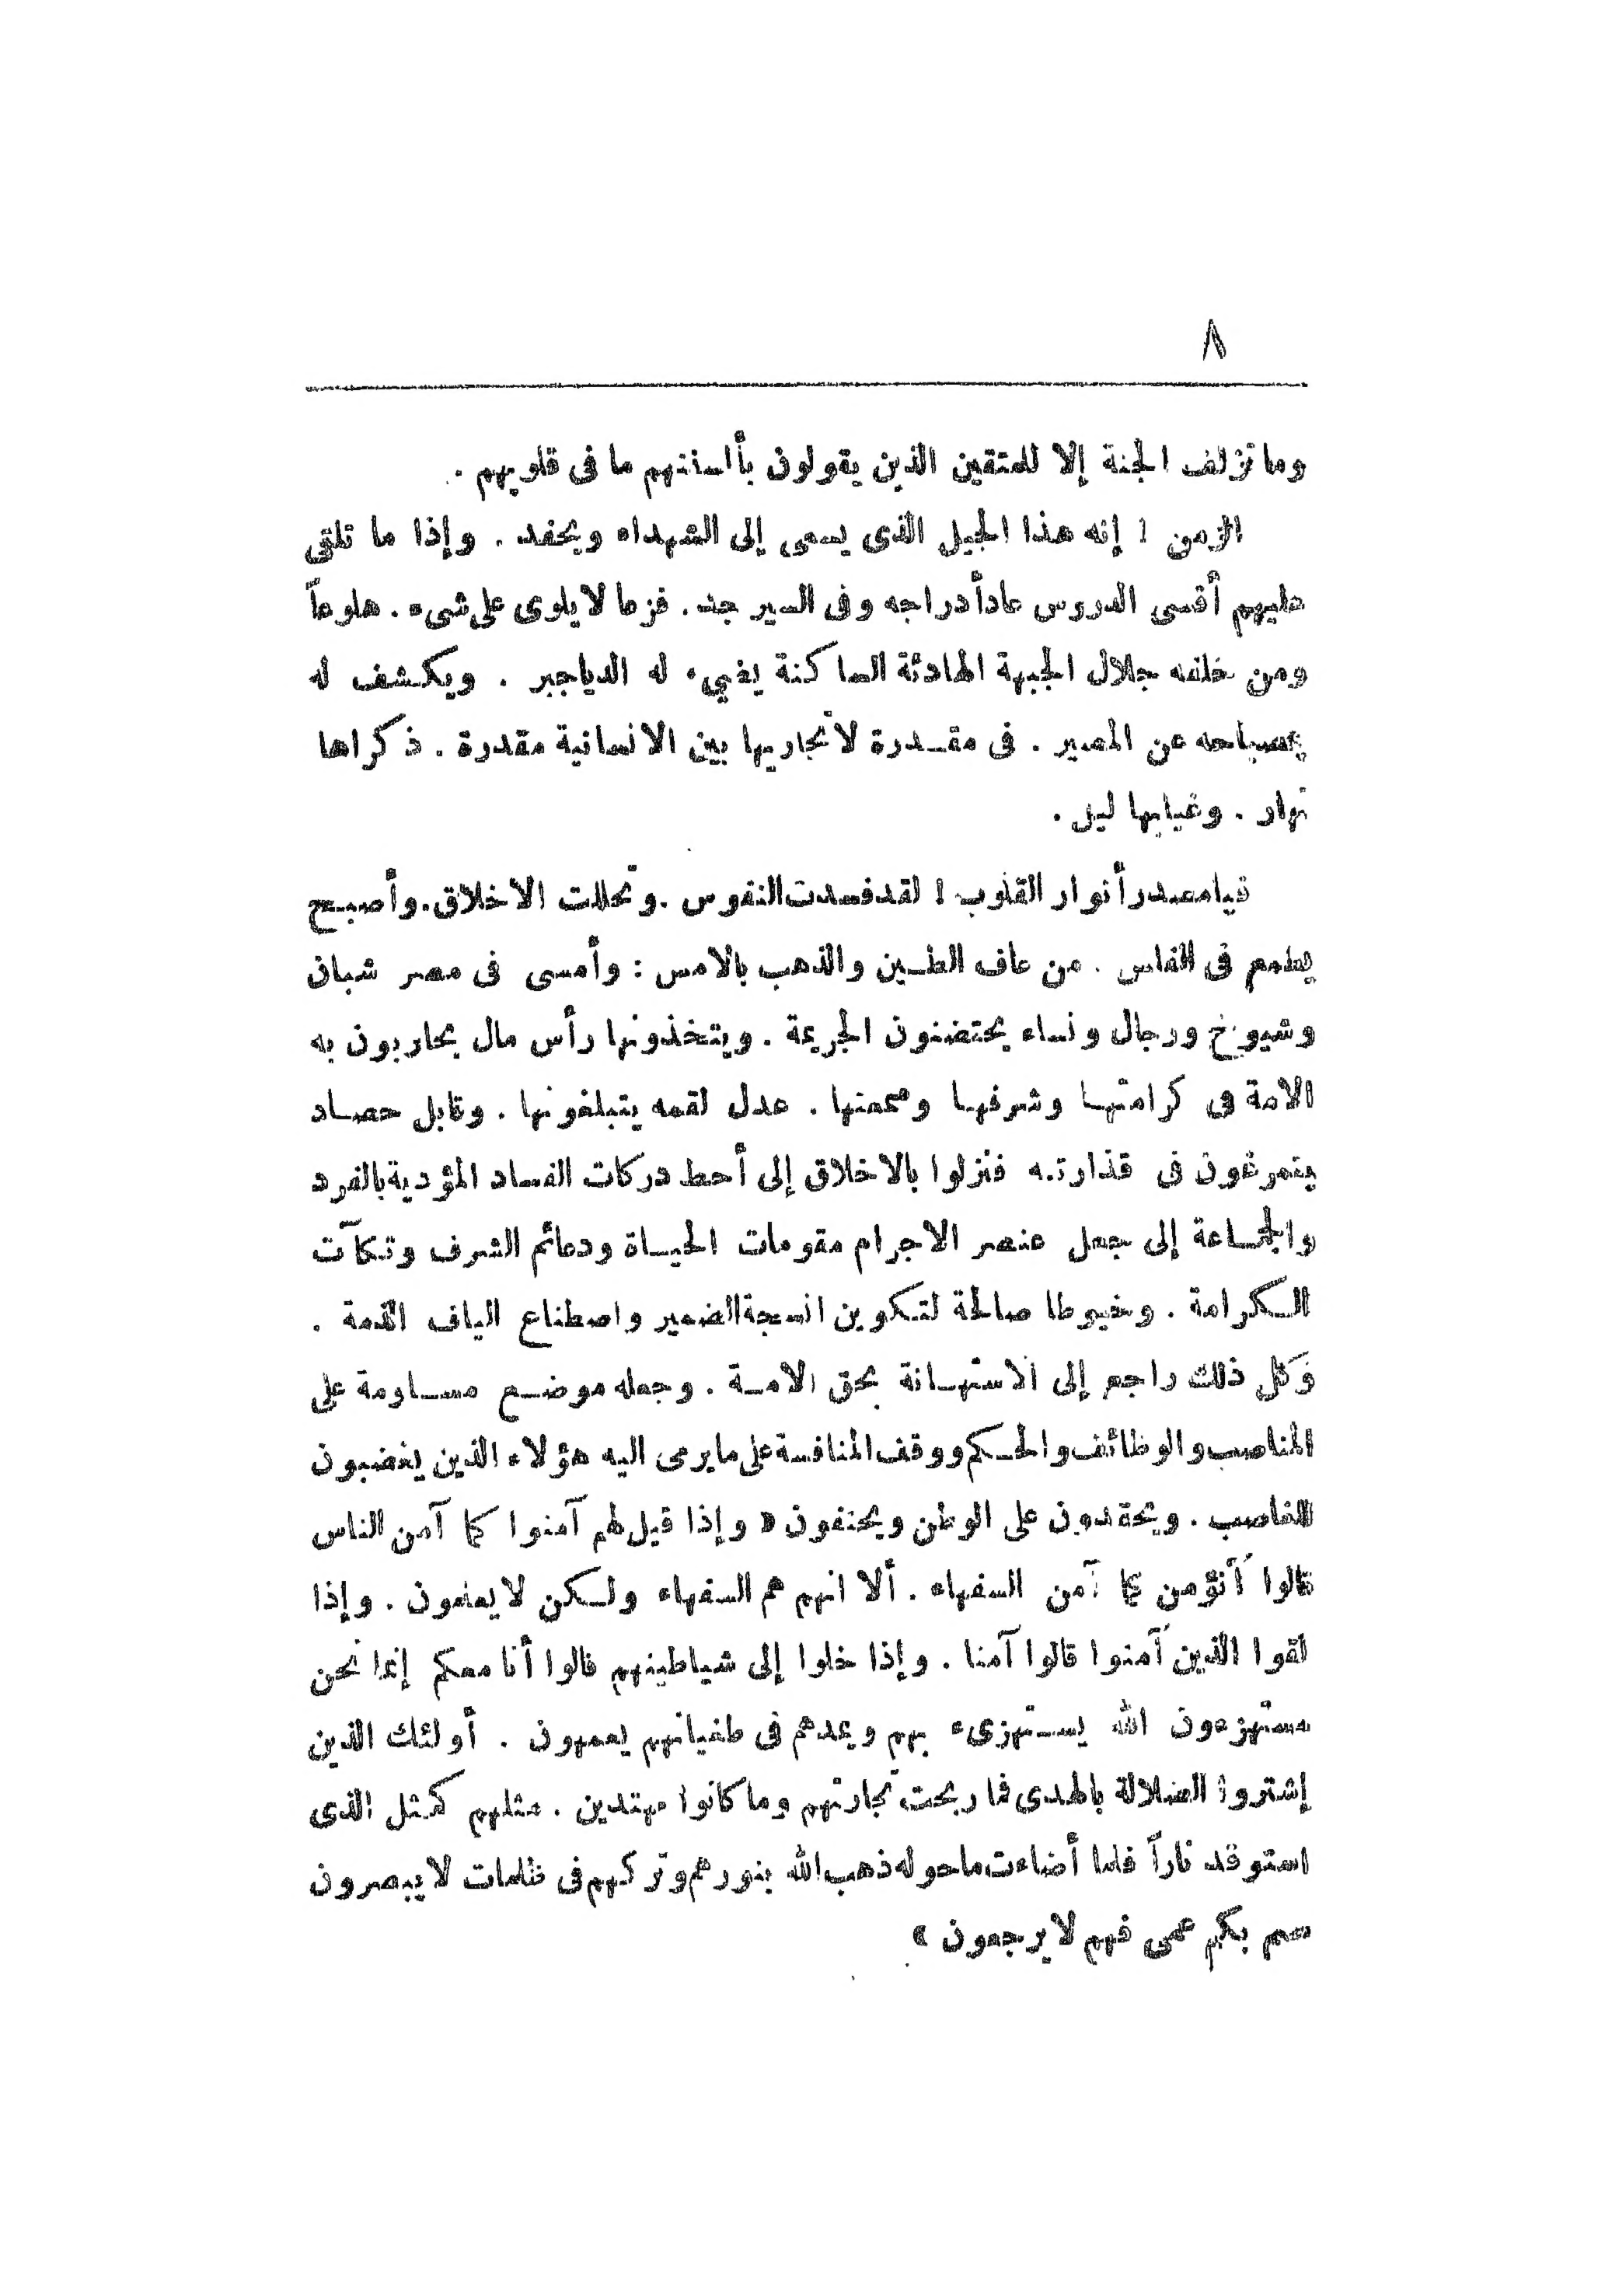 ٨
وما تزلف الجنة إلا للمتقين الذين يقولون بألسنتهم ما فى قلوبهم .
الزمن ! إنه هذا الجيل الذى يسعى إلى الشهداء ويحفد . وإذا ما تلقى
عليهم أقسى الدروس عاد أدراجه وفى السير جد . فزعا لا يلوى على شىء . هلوعاً
ومن خلفه جلال الجبهة الهادئة الساكنة يضيء له الدياجير . ويكشف له
بمصباحه عن المصير . فى مقدرة لا تجاريها بين الانسانية مقدرة . ذكراها
نهار . وغيابها ليل .
فيا مصدر أنوار القلوب ! لقد فسدت النفوس . وتحللت الاخلاق . وأصبح
يطمع فى الفلس . من عاف الطين والذهب بالامس : وأمسى فى مصر شبان
وشيوخ ورجال ونساء يحتضنون الجريمة . ويتخذونها رأس مال يحاربون به
الامة فى كرامتها وشرفها وسمعتها . عدل لقمه يتبلغونها . وقابل حصاد
يتمرغون فى قذارته فنزلوا بالاخلاق إلى أحط دركات الفساد المؤدية بالفرد
والجماعة إلى جعل عنصر الاجرام مقومات الحياة ودعائم الشرف وتكآت
الكرامة . وخيوطا صالحة لتكوين انسجة الضمير واصطناع الياف الذمة .
وكل ذلك راجع إلى الاستهانة بحق الامة . وجعله موضع مساومة على
المناصب والوظائف والحكم ووقف المنافسة على ما يرمى اليه هؤلاء الذين يغضبون
للغاصب . ويحقدون على الوطن ويحنقون « وإذا قيل لهم آمنوا كما آمن الناس
قالوا أنؤمن كما آمن السفهاء . ألا انهم هم السفهاء ولكن لا يعلمون . وإذا
لقوا الذين آمنوا قالوا آمنا . وإذا خلوا إلى شياطينهم قالوا أنا معكم إنما نحن
مستهزءون الله يستهزىء بهم ويمدهم فى طغيانهم يعمهون . أولئك الذين
إشتروا الضلالة بالهدى فما ربحت تجارتهم وما كانوا مهتدين . مثلهم كمثل الذى
استوقد ناراً فلما أضاءت ما حوله ذهب الله بنورهم وتركهم فى ظلمات لا يبصرون
صم بكم عمى فهم لا يرجعون »